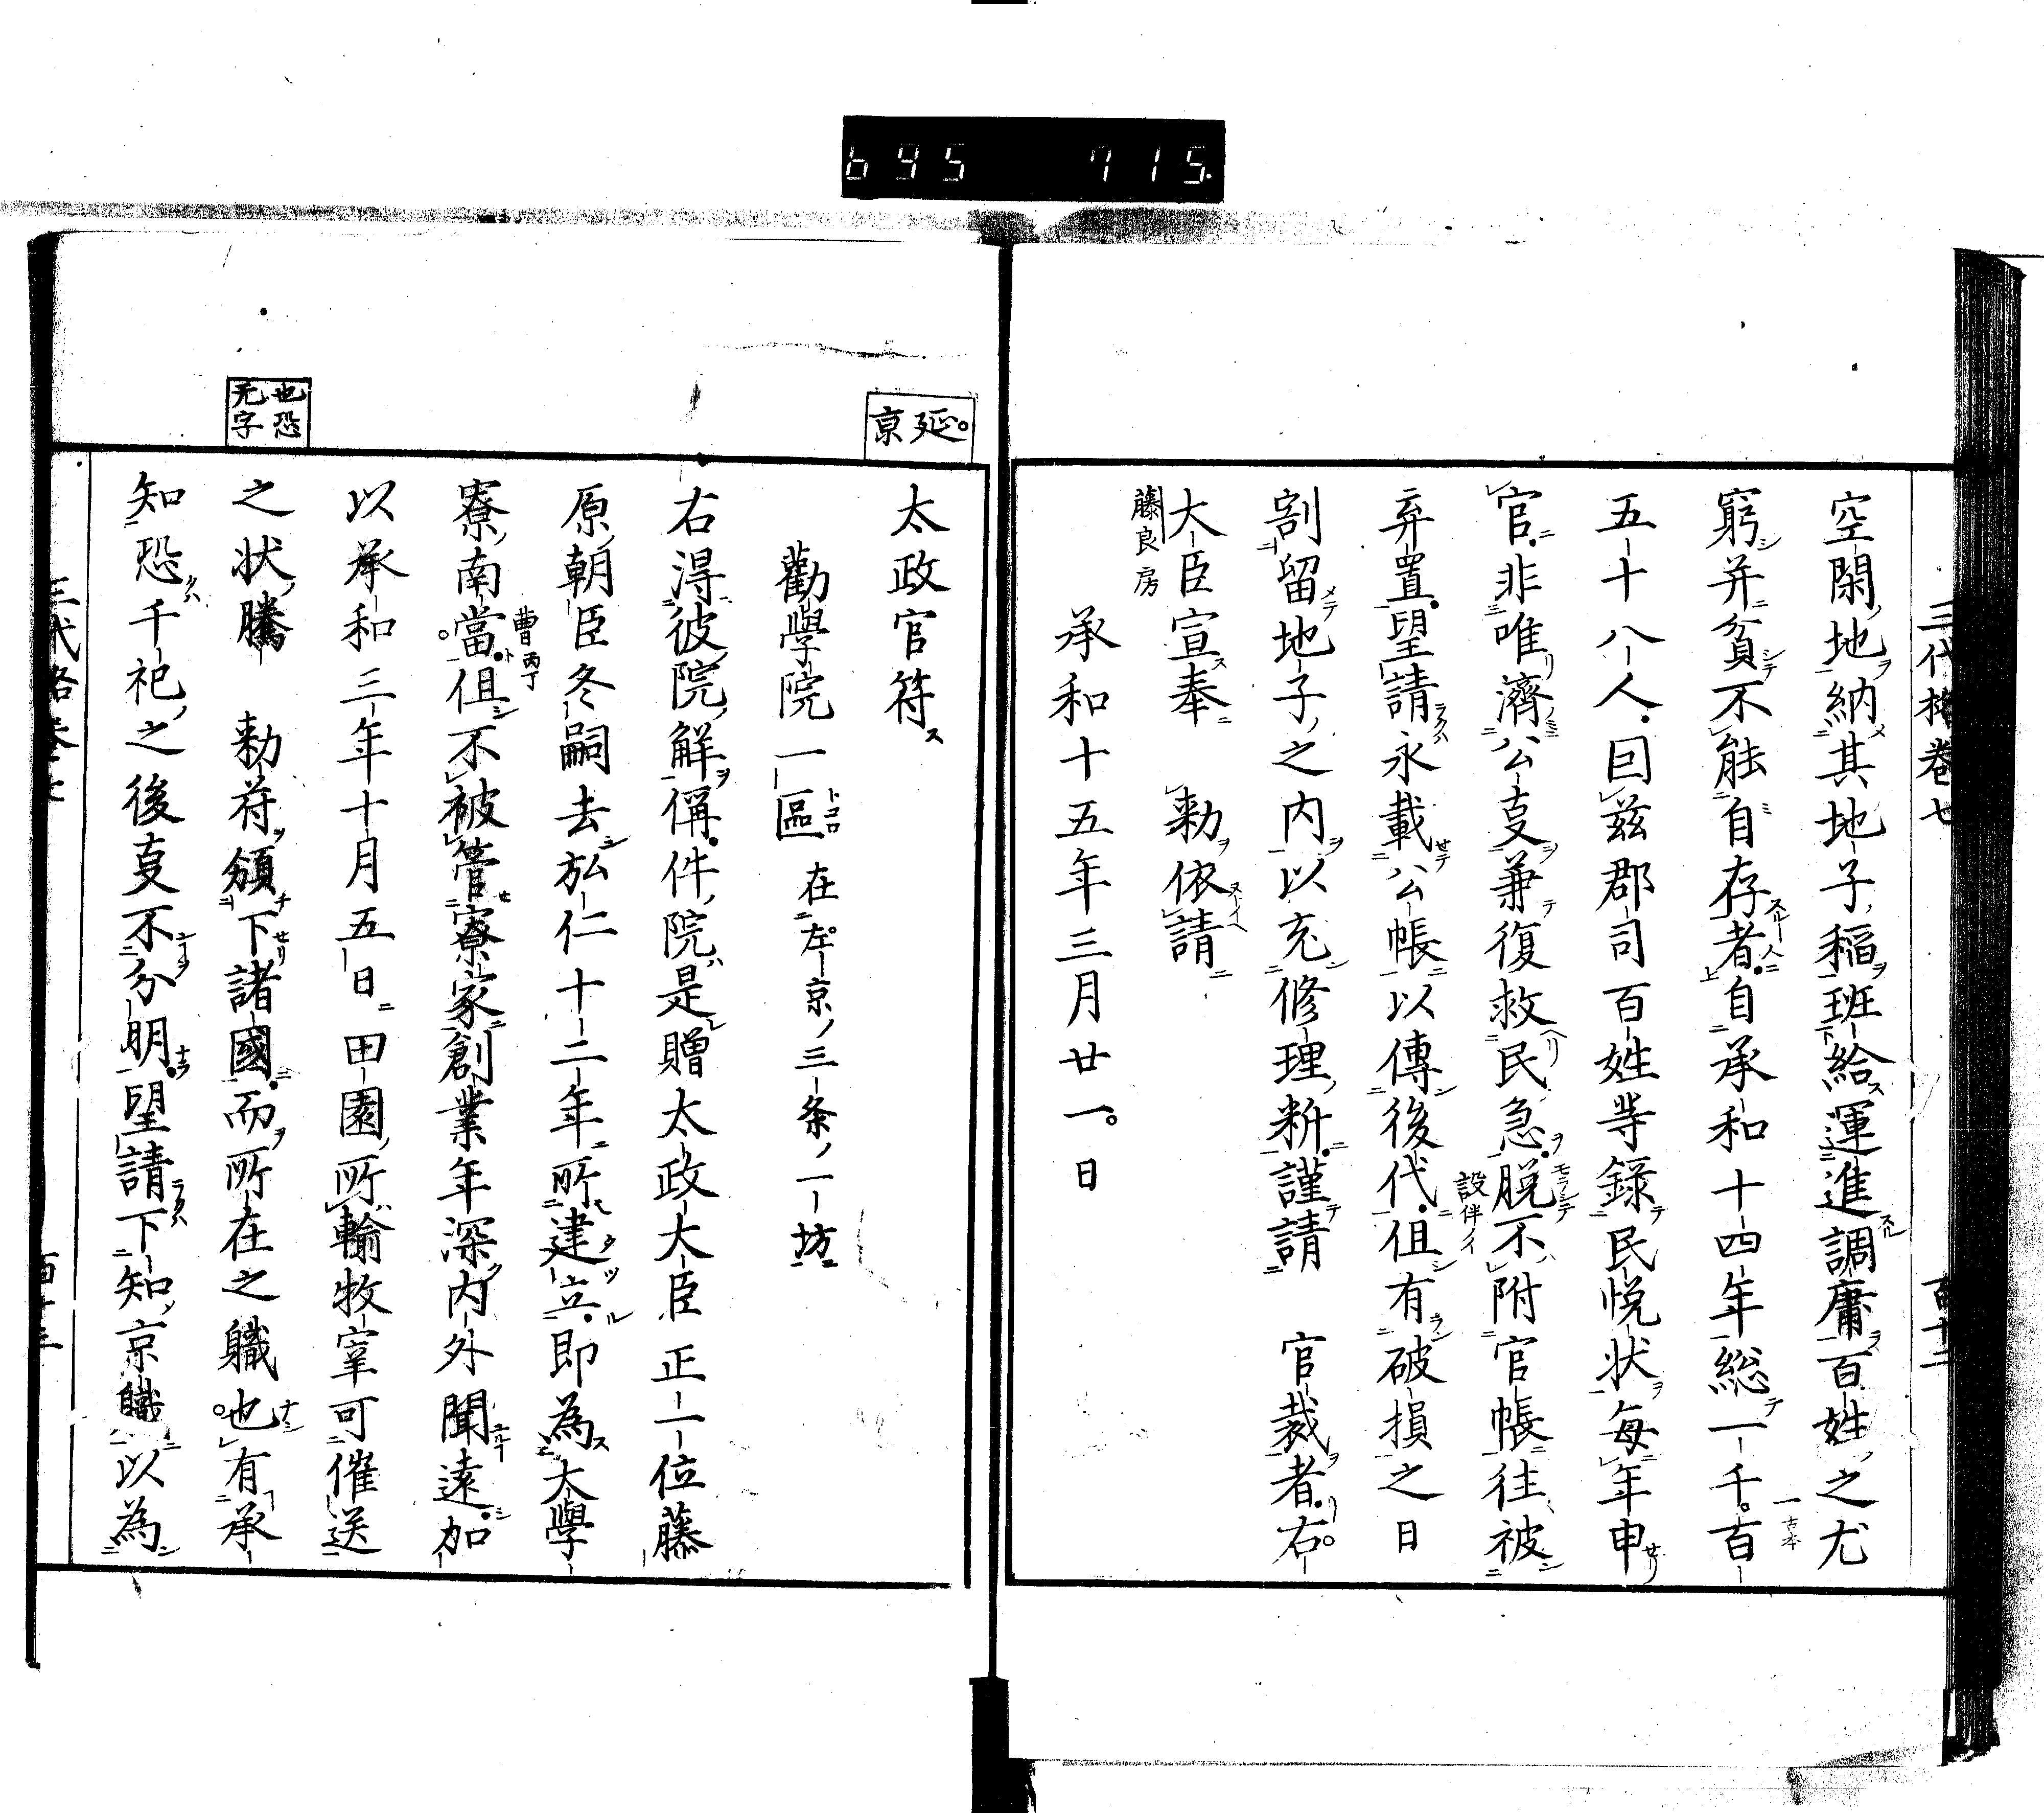 695 715
三代格卷七
百十二
空閑地納其地子稲班給運進調庸百姓之尤
窮并貧不能自存者自承和十四年総一千百
一古本
五十八人回茲郡司百姓等録民悦状每年申
官非唯濟公事兼復救民急脱不附官帳往被
設伴イ
弃置望請永載公帳以傳後代但有破損之日
割留地子之内以充修理料謹請 官裁者右
大臣宣奉 勅依請
藤良房
承和十五年三月廿一日
延京
太政官符
勸學院一區在左京三条一坊
トコロ
右得彼院解偁件院是贈太政大臣正一位藤
原朝臣冬嗣去弘仁十二年所建立即為大學
寮南當但不被管寮家創業年深内外聞遠加
曹丙丁
以承和三年十月五日田園所輸牧宰可催送
之状騰 勅符頒下諸國而所在之職也有承
也恐无字
知恐千祀之後事不分明望請下知京職以為
三代格卷七